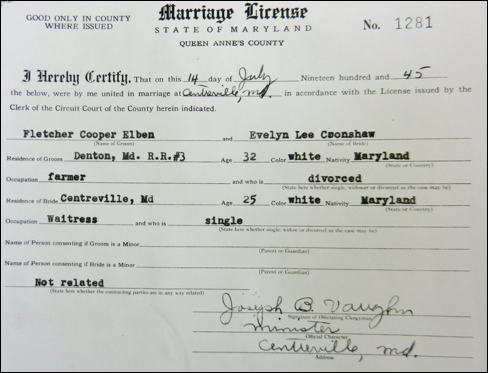 GOOD ONLY IN COUNTY
WHERE ISSUED
Marriage License
STATE OF MARYLAND
QUEEN ANNE'S COUNTY
No. 1281
I Hereby Certify, That on this 14 day of July Nineteen hundred and 45
the below, were by me united in marriage at Centreville, Md. in accordance with the License issued by the
Clerk of the Circuit Court of the County herein indicated.
Fletcher Cooper Elben and Evelyn Lee Coonshaw
(Name of Groom) (Name of Bride)
Residence of Groom Denton, Md. R.R.#3 Age 32 Color white Nativity Maryland
(State or Country)
Occupation farmer and who is divorced
(State here whether single, widower or divorced as the case may be)
Residence of Bride Centreville, Md Age 25 Color white Nativity Maryland
(State or Country)
Occupation Waitress and who is single
(State here whether single, widow or divorced as the case may be)
Name of Person consenting if Groom is a Minor
(Parent or Guardian)
Name of Person consenting if Bride is a Minor
(Parent or Guardian)
Not related
(State here whether the contracting parties are in any way related)
Joseph B. Vaughn
Signature of Officiating Clergyman
Minister
Official Character
Centreville, Md.
Address